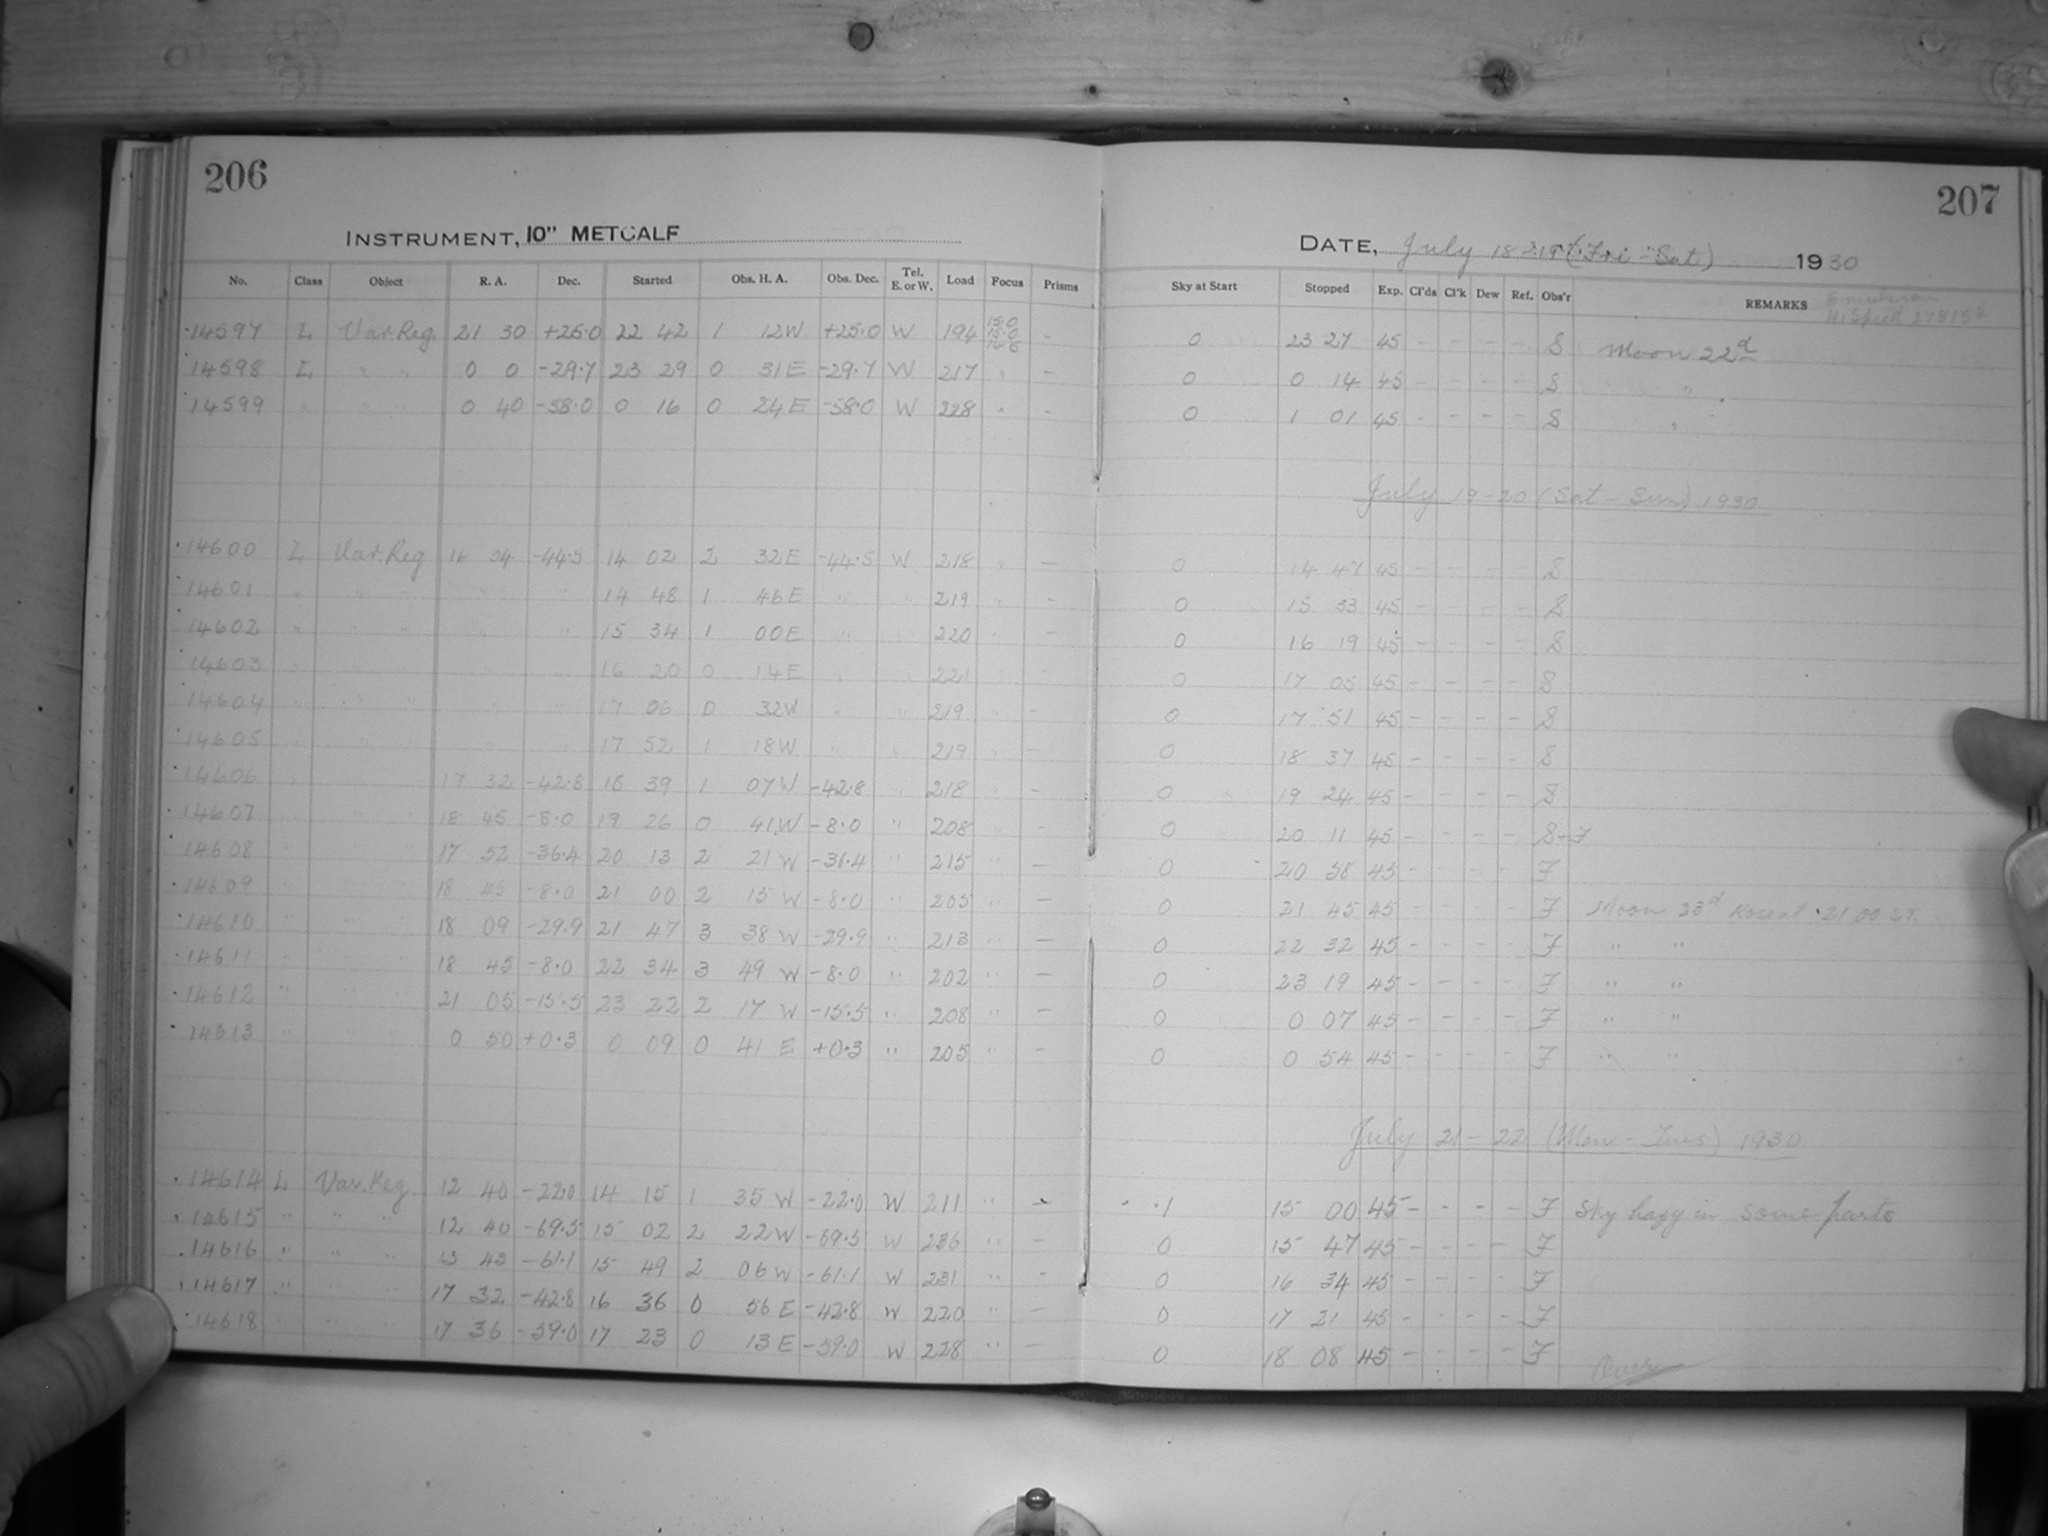 206
INSTRUMENT, 10" METCALF
No. Class Object R. A. Dec. Started Obs. H. A. Obs. Dec. Tel. E. or W. Load Focus Prisms
14597 L Var. Reg. 21 30 +25.0 22 42 1 12W +25.0 W 194 15.0 –
14598 L " " 0 0 -29.7 23 29 0 31E -29.7 W 217 " –
14599 " " " 0 40 -58.0 0 16 0 24E -58.0 W 228 " –
14600 L Var. Reg 16 34 -44.5 14 02 2 32E -44.5 W 218 " –
14601 " " " " " " 14 48 1 46E " " 219 " –
14602 " " " " " 15 34 1 00E " " 220 " –
14603 " " " " " 16 20 0 14E " " 221 " –
14604 " " " " " 17 06 0 32W " " 219 " –
14605 " " " " " 17 52 1 18W " " 219 " –
14606 " " " 17 32 -42.8 18 39 1 07W -42.8 " 218 " –
14607 " " " 18 45 -8.0 19 26 0 41W -8.0 " 208 " –
14608 " " " 17 52 -36.4 20 13 2 21 W -36.4 " 215 " –
14609 " " " 18 45 -8.0 21 00 2 15 W -8.0 " 205 " –
14610 " " " 18 09 -29.9 21 47 3 38 W -29.9 " 213 " –
14611 " " " 18 45 -8.0 22 34 3 49 W -8.0 " 202 " –
14612 " " " 21 05 -15.5 23 22 2 17 W -15.5 " 208 " –
14613 " " " 0 50 +0.3 0 09 0 41 E +0.3 " 205 " –
14614 L Var. Reg. 12 40 -22.0 14 15 1 35 W -22.0 W 211 " –
14615 " " " 12 40 -69.5 15 02 2 22W -69.5 W 236 " –
14616 " " " 13 43 -61.1 15 49 2 06W -61.1 W 231 " –
14617 " " " 17 32 -42.8 16 36 0 56 E -42.8 W 220 " –
14618 " " " 17 36 -59.0 17 23 0 13 E -59.0 W 228 " –
207
DATE, July 18-19 (Fri-Sat) 1930
Sky at Start Stopped Exp. Cl'ds Cl'k Dew Ref. Obs'r REMARKS
Emulsion
Hi Speed
0 23 27 45 – – – – S Moon 22d
0 0 14 45 – – – – S "
0 1 01 45 – – – – S "
July 19-20 (Sat-Sun) 1930
0 14 47 45 – – – – S
0 15 33 45 – – – – S
0 16 19 45 – – – – S
0 17 05 45 – – – – S
0 17 51 45 – – – – S
0 18 37 45 – – – – S
0 19 24 45 – – – – S
0 20 11 45 – – – – S+F
0 20 58 45 – – – – F
0 21 45 45 – – – – F Moon 23d Rose at 21 00
0 22 32 45 – – – – F " "
0 23 19 45 – – – – F " "
0 0 07 45 – – – – F " "
0 0 54 45 – – – – F " "
July 21-22 (Mon-Tues) 1930
.1 15 00 45 – – – – F Sky hazy in some parts
0 15 47 45 – – – – F
0 16 34 45 – – – – F
0 17 21 45 – – – – F
0 18 08 45 – – – – F
Over